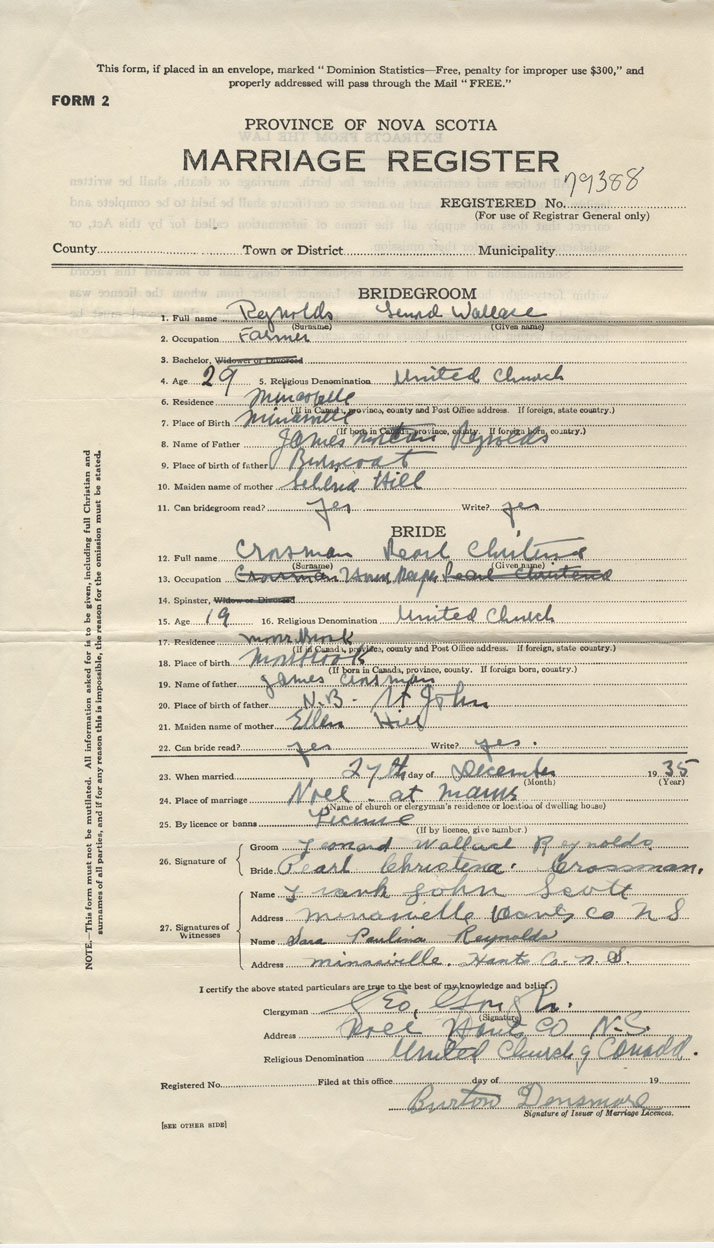 This form, if placed in an envelope, marked "Dominion Statistics—Free, penalty for improper use $300," and
properly addressed will pass through the Mail "FREE."
FORM 2
PROVINCE OF NOVA SCOTIA
MARRIAGE REGISTER
79388
REGISTERED No.
(For use of Registrar General only)
County Town or District Municipality
BRIDEGROOM
1. Full name Reynolds Wallace
(Surname) (Given name)
2. Occupation Farmer
3. Bachelor, Widower or Divorced
4. Age 29 5. Religious Denomination United Church
6. Residence
(If in Canada, province, county and Post Office address. If foreign, state country.)
7. Place of Birth Minasville
(If born in Canada, province, county. If foreign born, country.)
8. Name of Father James Reynolds
9. Place of birth of father Burncoat
10. Maiden name of mother Hill
11. Can bridegroom read? yes Write? yes
BRIDE
12. Full name Crosman Pearl Christena
(Surname) (Given name)
13. Occupation Crossman House Keeper Pearl Christena
14. Spinster, Widow or Divorced
15. Age 19 16. Religious Denomination United Church
17. Residence
(If in Canada, province, county and Post Office address. If foreign, state country.)
18. Place of birth
(If born in Canada, province, county. If foreign born, country.)
19. Name of father James Crosman
20. Place of birth of father N.B. St John
21. Maiden name of mother Ellen Hill
22. Can bride read? yes Write? yes.
23. When married 27th day of December 1935
(Month) (Year)
24. Place of marriage Noel - at manse
(Name of church or clergyman's residence or location of dwelling house)
25. By licence or banns License
(If by licence, give number.)
26. Signature of
Groom Leonard Wallace Reynolds
Bride Pearl Christena. Crossman.
27. Signatures of Witnesses
Name Frank John Scott
Address Minasville Hants Co N S
Name Sara Paulina Reynolds
Address Minasville. Hants Co. N. S.
I certify the above stated particulars are true to the best of my knowledge and belief.
Clergyman Geo.
(Signature)
Address Noel Hants Co N.S.
Religious Denomination United Church of Canada.
Registered No. Filed at this office day of 19
Burton Densmore
Signature of Issuer of Marriage Licences.
[SEE OTHER SIDE]
NOTE.—This form must not be mutilated. All information asked for is to be given, including full Christian and
surnames of all parties, and if for any reason this is impossible, the reason for the omission must be stated.